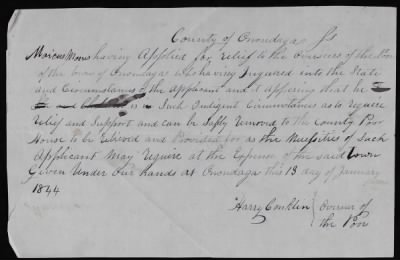 County of Onondaga Ss
Marcus Moses having Applied for relief to the Overseers of the Poor
of the town of Onondaga & who having Inquired into the State
and Circumstances of the Applicant and it appering that he
is in Such Indigent Circumstances as to require
relief and Support and can be Safly removed to the County Poor
House to be relieved and Provided for as the Nessities of Such
Applicant May require at the Expense of the Said town
Given Under our hands at Onondaga this 13 day of January
1844
Harry Conklin } Overseer of
the Poor